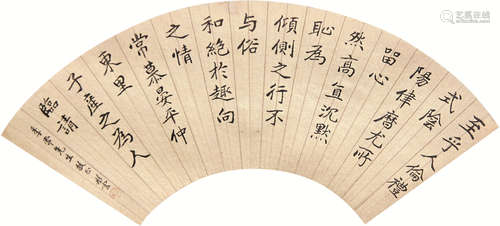 至乎人倫禮
式陰
陽律曆尤所
留心
然高直沉默
恥為
傾側之行不
与俗
和絕於趣向
之情
常慕晏平仲
東里
子產之為人
臨請
季常先生教正